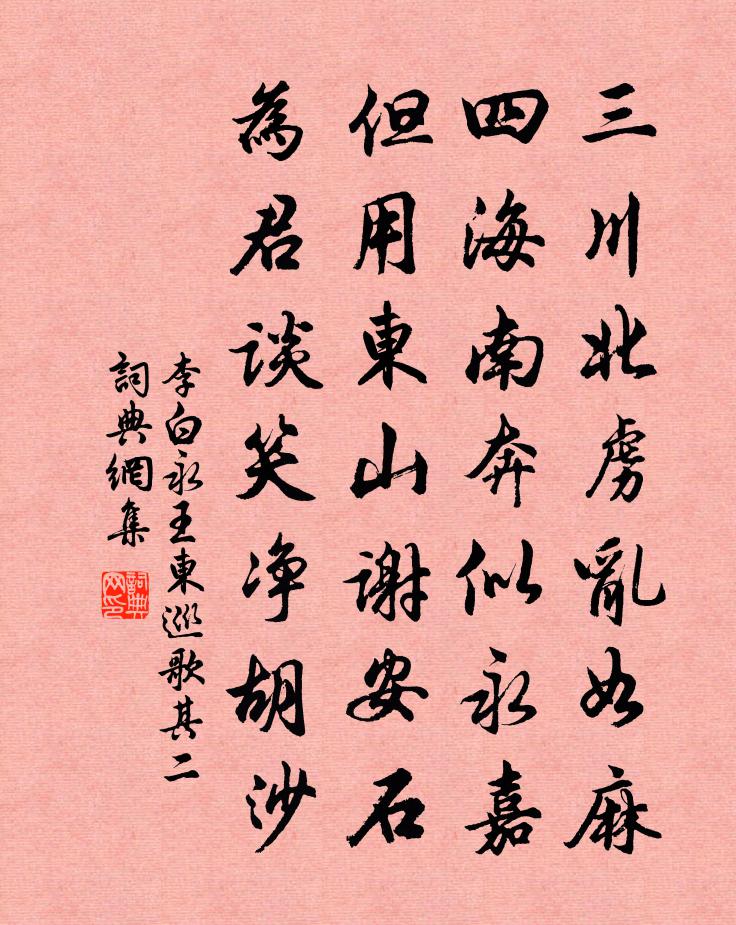 三川北虏亂如麻
四海南奔似永嘉
但用東山謝安石
為君談笑净胡沙
李白永王東巡歌其二
詞典網集
詞典网印